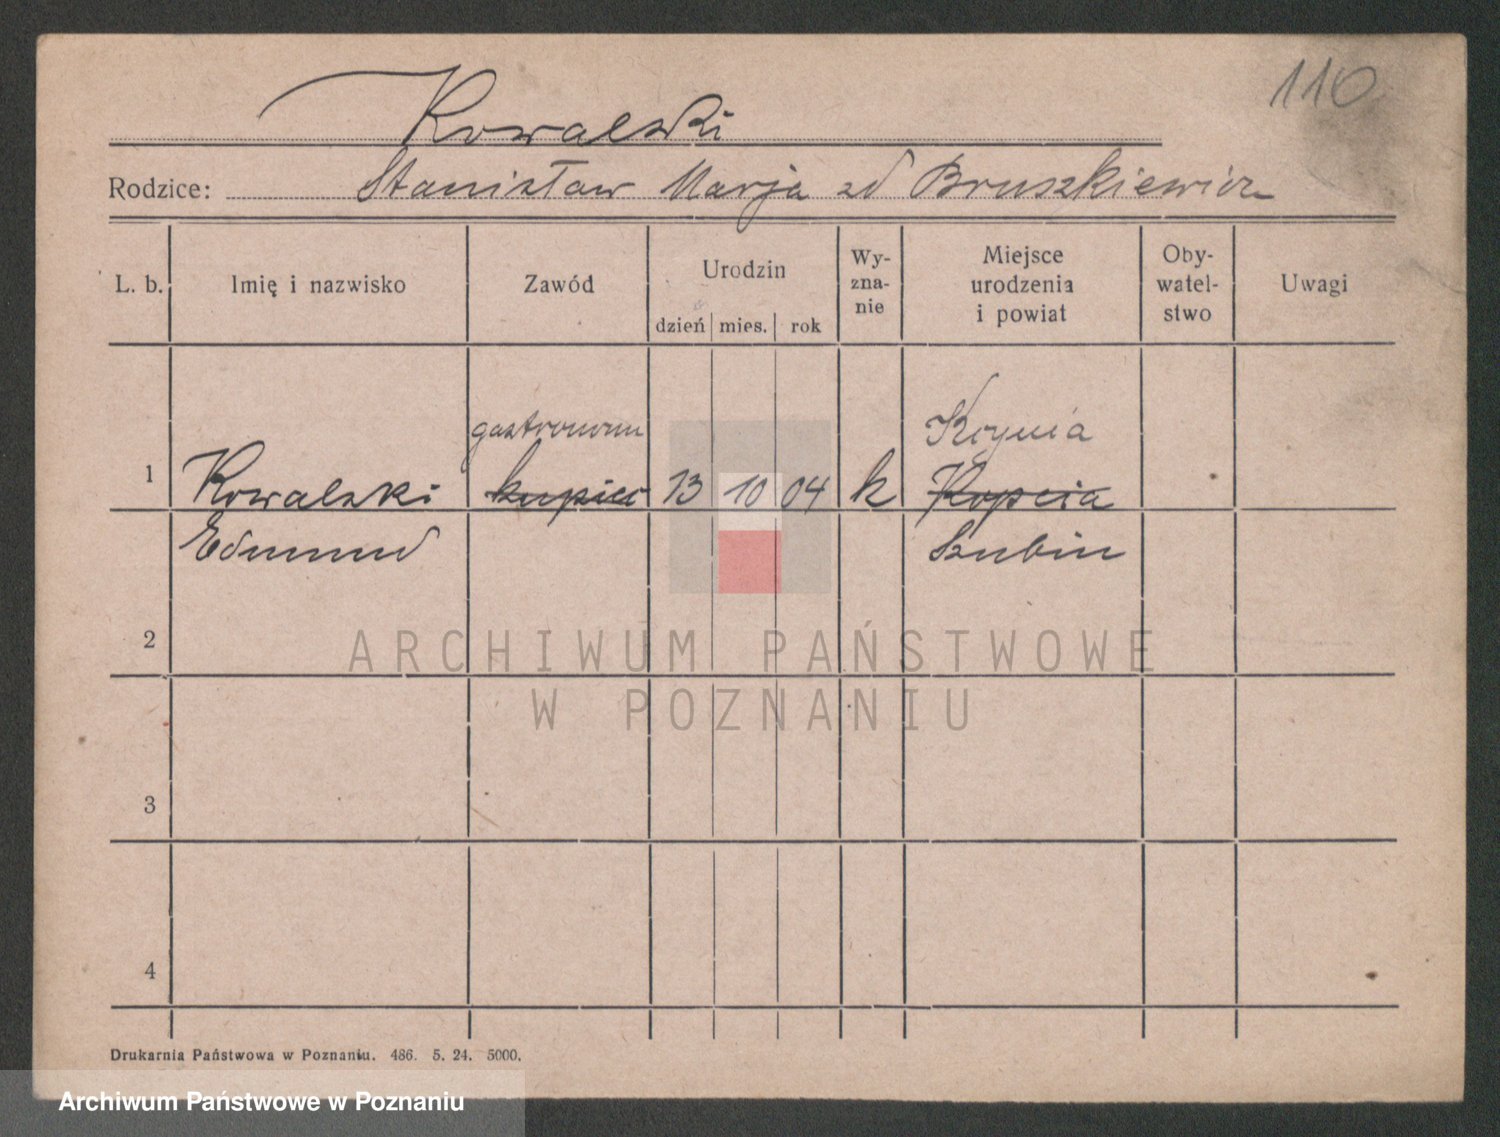 110
Kowalski
Rodzice: Stanisław Marja zd Bruszkiewicz
L. b. Imię i nazwisko Zawód Urodzin Wy-zna-nie Miejsce urodzenia i powiat Oby-watel-stwo Uwagi
dzień mies. rok
gastronom Kcynia
1 Kowalski kupiec 13 10 04 k Kopcia
Edmund Szubin
2
ARCHIWUM PAŃSTWOWE
W POZNANIU
3
4
Drukarnia Państwowa w Poznaniu. 486. 5. 24. 5000.
Archiwum Państwowe w Poznaniu